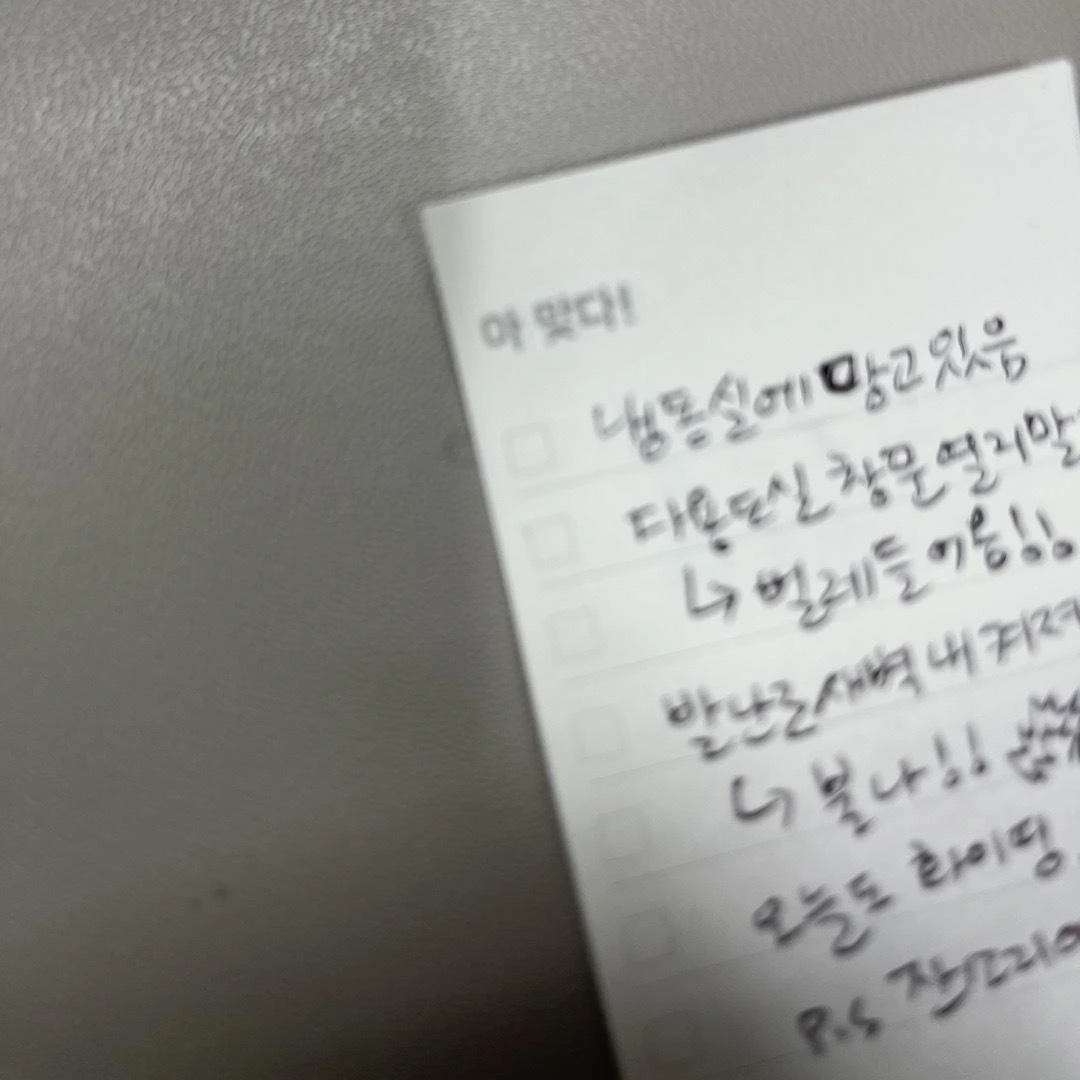 아 맞다!
냉동실에 망고 있음
다용도실 창문 열지 말
↳ 벌레 들어옴!!
발난로 새벽 내 켜져
↳ 불나!!
오늘도 화이띵
P.S